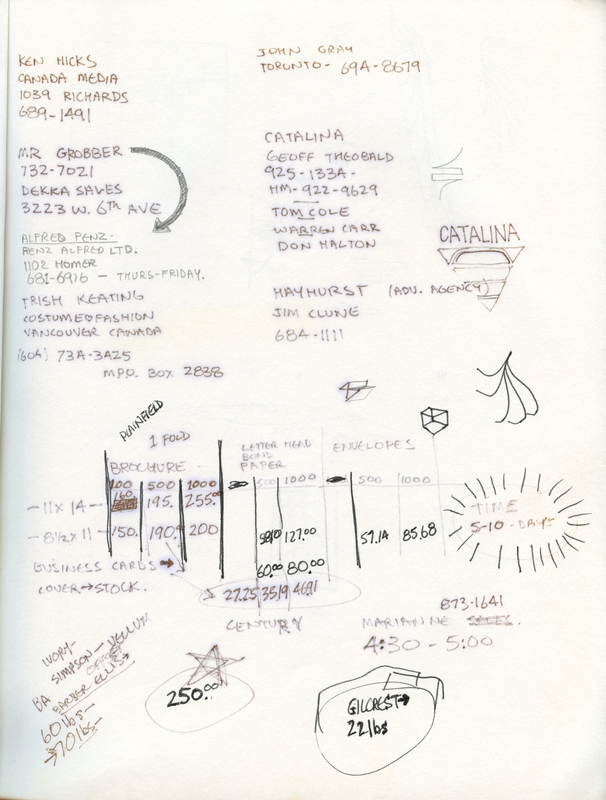 KEN HICKS
CANADA MEDIA
1039 RICHARDS
689-1491
JOHN GRAY
TORONTO - 694-8679
MR GROBBER
732-7021
DEKKA SALES
3223 W. 6TH AVE
ALFRED PENZ-
PENZ ALFRED LTD.
1102 HOMER
681-6916 - THURS-FRIDAY.
TRISH KEATING
COSTUME & FASHION
VANCOUVER CANADA
(604) 734-3425
M.P.O. BOX 2838
CATALINA
GEOFF THEOBALD
925-1334-
HM- 922-9629
TOM COLE
WARREN CARR
DON HALTON
CATALINA
HAYHURST (ADV. AGENCY)
JIM CLUNE
684-1111
PLAINFIELD
1 FOLD
BROCHURE
LETTER HEAD
BOND
PAPER
ENVELOPES
100 500 1000 500 1000 500 1000
160.
- 11 x 14 - 195. 255.00
- 8 1/2 x 11 - 150. 190.00 200 127.00 57.14 85.68
TIME
5-10 - DAYS
BUSINESS CARDS → 60.00 80.00
COVER → STOCK. 27.25 35.19 46.91
CENTURY
873-1641
MARIANNE
4:30 - 5:00
IVORY-
SIMPSON - VELLUM
OFFSET
BA BARBER ELLIS →
60 lbs -
→ 70 lbs -
250.00
GILCREST →
22 lbs